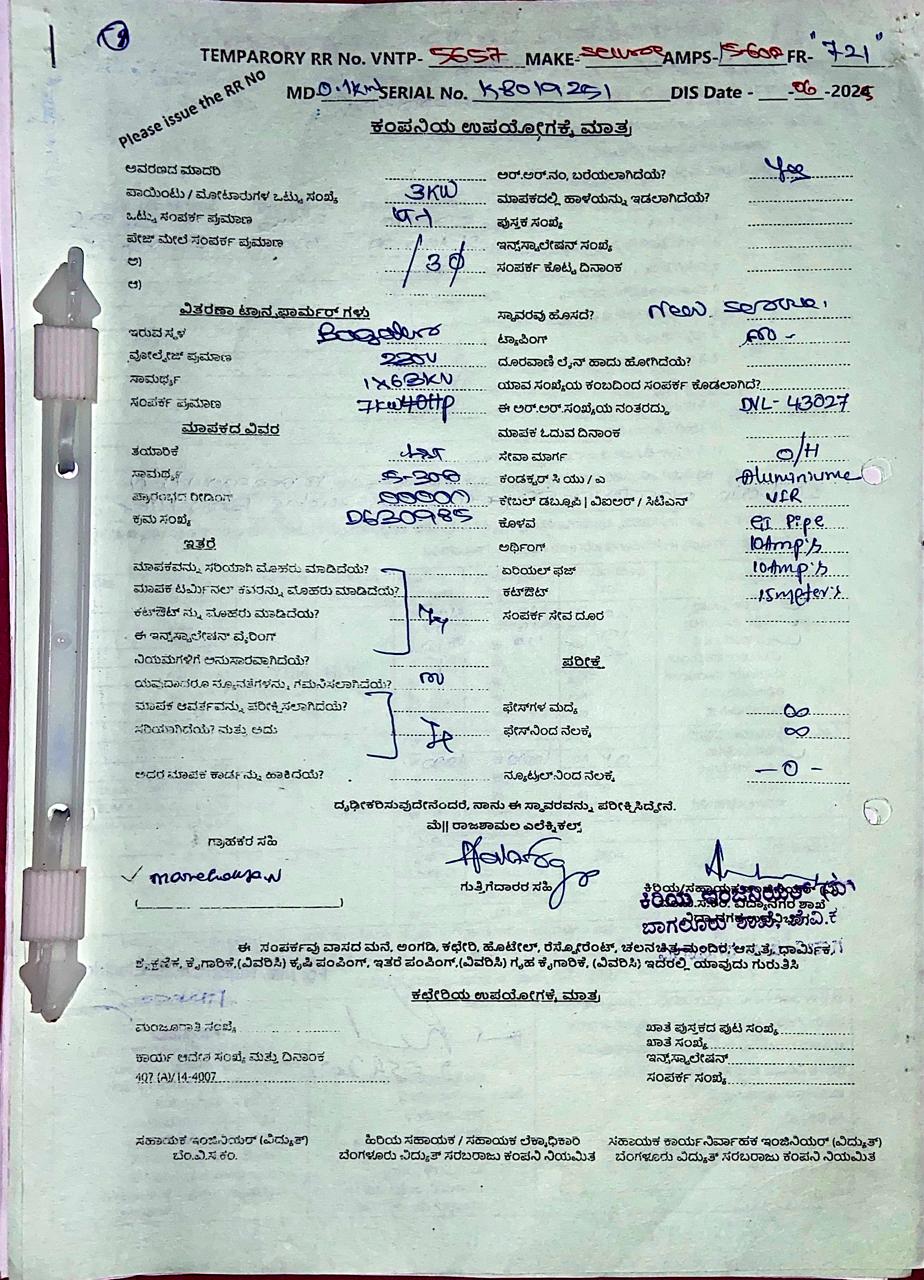 TEMPARORY RR No. VNTP- 5657 MAKE- AMPS- FR- "721"
Please issue the RR No
MD 0.1KW SERIAL No. K8019251 DIS Date - 06 -2025
ಕಂಪನಿಯ ಉಪಯೋಗಕ್ಕೆ ಮಾತ್ರ
ಆವರಣದ ಮಾದರಿ
ಪಾಯಿಂಟು / ಮೋಟಾರುಗಳ ಒಟ್ಟು ಸಂಖ್ಯೆ 3KW
ಒಟ್ಟು ಸಂಪರ್ಕ ಪ್ರಮಾಣ
ಪೇಜ್ ಮೇಲೆ ಸಂಪರ್ಕ ಪ್ರಮಾಣ
ಅ) / 3φ
ಆ)
ಆರ್.ಆರ್.ನಂ, ಬರೆಯಲಾಗಿದೆಯೆ? Yes
ಮಾಪಕದಲ್ಲಿ ಹಾಳೆಯನ್ನು ಇಡಲಾಗಿದೆಯೆ?
ಪುಸ್ತಕ ಸಂಖ್ಯೆ
ಇನ್ಸ್‌ಸ್ಟಾಲೇಷನ್ ಸಂಖ್ಯೆ
ಸಂಪರ್ಕ ಕೊಟ್ಟ ದಿನಾಂಕ
ವಿತರಣಾ ಟ್ರಾನ್ಸ್‌ಫಾರ್ಮರ್ ಗಳು
ಇರುವ ಸ್ಥಳ
ವೋಲ್ಟೇಜ್ ಪ್ರಮಾಣ 220V
ಸಾಮರ್ಥ್ಯ 1x63KV
ಸಂಪರ್ಕ ಪ್ರಮಾಣ 7KW40HP
ಮಾಪಕದ ವಿವರ
ತಯಾರಿಕೆ
ಸಾಮರ್ಥ್ಯ 5-30A
ಪ್ರಾರಂಭದ ರೀಡಿಂಗ್ 00000
ಕ್ರಮ ಸಂಖ್ಯೆ D630985
ಇತರೆ
ಮಾಪಕವನ್ನು ಸರಿಯಾಗಿ ಮೊಹರು ಮಾಡಿದೆಯೆ?
ಮಾಪಕ ಟರ್ಮಿನಲ್ ಕವರನ್ನು ಮೊಹರು ಮಾಡಿದೆಯೆ?
ಕಟ್‌ಔಟ್ ನ್ನು ಮೊಹರು ಮಾಡಿದೆಯೆ?
ಈ ಇನ್ಸ್‌ಸ್ಟಾಲೇಷನ್ ವೈರಿಂಗ್
ನಿಯಮಗಳಿಗೆ ಅನುಸಾರವಾಗಿದೆಯೆ?
ಯಾವುದಾದರೂ ನ್ಯೂನತೆಗಳನ್ನು ಗಮನಿಸಲಾಗಿದೆಯೆ?
ಮಾಪಕ ಆವರ್ತವನ್ನು ಪರೀಕ್ಷಿಸಲಾಗಿದೆಯೆ?
ಸರಿಯಾಗಿದೆಯೆ? ಮತ್ತು ಅದು
ಅದರ ಮಾಪಕ ಕಾರ್ಡನ್ನು ಹಾಕಿದೆಯೆ?
ಸ್ಥಾವರವು ಹೊಸದೆ? New Service
ಟ್ಯಾಪಿಂಗ್
ದೂರವಾಣಿ ಲೈನ್ ಹಾದು ಹೋಗಿದೆಯೆ?
ಯಾವ ಸಂಖ್ಯೆಯ ಕಂಬದಿಂದ ಸಂಪರ್ಕ ಕೊಡಲಾಗಿದೆ?
ಈ ಆರ್.ಆರ್.ಸಂಖ್ಯೆಯ ನಂತರದ್ದು DVL- 43027
ಮಾಪಕ ಓದುವ ದಿನಾಂಕ
ಸೇವಾ ಮಾರ್ಗ O/H
ಕಂಡಕ್ಟರ್ ಸಿ ಯು / ಎ Aluminiume
ಕೇಬಲ್ ಡಬ್ಲೂಪಿ | ವಿಐಆರ್ / ಸಿಟಿಎಸ್ VIR
ಕೊಳವೆ GI Pipe
ಅರ್ಥಿಂಗ್ 10Amp's
ಏರಿಯಲ್ ಫ್ಯೂಜ್ 10Amp's
ಕಟ್‌ಔಟ್ 15meter's
ಸಂಪರ್ಕ ಸೇವ ದೂರ
ಪರೀಕ್ಷೆ
ಫೇಸ್‌ಗಳ ಮಧ್ಯೆ ∞
ಫೇಸ್‌ನಿಂದ ನೆಲಕ್ಕೆ ∞
ನ್ಯೂಟ್ರಲ್‌ನಿಂದ ನೆಲಕ್ಕೆ -0-
ದೃಢೀಕರಿಸುವುದೇನೆಂದರೆ, ನಾನು ಈ ಸ್ಥಾವರವನ್ನು ಪರೀಕ್ಷಿಸಿದ್ದೇನೆ.
ಮೆ|| ರಾಜಶಾಮಲ ಎಲೆಕ್ಟ್ರಿಕಲ್ಸ್
ಗ್ರಾಹಕರ ಸಹಿ
ಗುತ್ತಿಗೆದಾರರ ಸಹಿ
ಕಿರಿಯ ಇಂಜಿನಿಯರ್ (ವಿ)
ಬಾಗಲೂರು ಶಾಖೆ,
ಈ ಸಂಪರ್ಕವು ವಾಸದ ಮನೆ, ಅಂಗಡಿ, ಕಛೇರಿ, ಹೊಟೇಲ್, ರೆಸ್ಟೋರೆಂಟ್, ಚಲನಚಿತ್ರ ಮಂದಿರ, ಆಸ್ಪತ್ರೆ, ಧಾರ್ಮಿಕ,
ಶೈಕ್ಷಣಿಕ, ಕೈಗಾರಿಕೆ,(ವಿವರಿಸಿ) ಕೃಷಿ ಪಂಪಿಂಗ್, ಇತರೆ ಪಂಪಿಂಗ್,(ವಿವರಿಸಿ) ಗೃಹ ಕೈಗಾರಿಕೆ, (ವಿವರಿಸಿ) ಇದರಲ್ಲಿ ಯಾವುದು ಗುರುತಿಸಿ
ಕಛೇರಿಯ ಉಪಯೋಗಕ್ಕೆ ಮಾತ್ರ
ಮಂಜೂರಾತಿ ಸಂಖ್ಯೆ
ಕಾರ್ಯ ಆದೇಶ ಸಂಖ್ಯೆ ಮತ್ತು ದಿನಾಂಕ
407 (A)/14-4007
ಖಾತೆ ಪುಸ್ತಕದ ಪುಟ ಸಂಖ್ಯೆ
ಖಾತೆ ಸಂಖ್ಯೆ
ಇನ್ಸ್‌ಸ್ಟಾಲೇಷನ್
ಸಂಪರ್ಕ ಸಂಖ್ಯೆ
ಸಹಾಯಕ ಇಂಜಿನಿಯರ್ (ವಿದ್ಯುತ್)
ಬೆಂ.ವಿ.ಸ.ಕಂ.
ಹಿರಿಯ ಸಹಾಯಕ / ಸಹಾಯಕ ಲೆಕ್ಕಾಧಿಕಾರಿ
ಬೆಂಗಳೂರು ವಿದ್ಯುತ್ ಸರಬರಾಜು ಕಂಪನಿ ನಿಯಮಿತ
ಸಹಾಯಕ ಕಾರ್ಯನಿರ್ವಾಹಕ ಇಂಜಿನಿಯರ್ (ವಿದ್ಯುತ್)
ಬೆಂಗಳೂರು ವಿದ್ಯುತ್ ಸರಬರಾಜು ಕಂಪನಿ ನಿಯಮಿತ